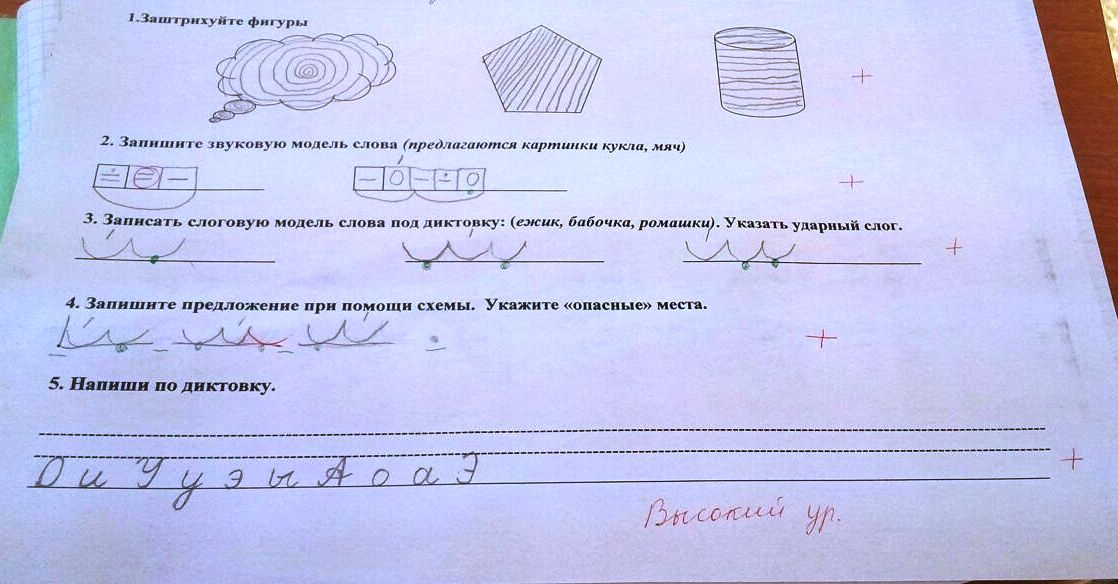 1.Заштрихуйте фигуры
+
2. Запишите звуковую модель слова (предлагаются картинки кукла, мяч)
+
3. Записать слоговую модель слова под диктовку: (ежик, бабочка, ромашки). Указать ударный слог.
+
4. Запишите предложение при помощи схемы. Укажите «опасные» места.
+
5. Напиши по диктовку.
О и У у э ы А о а Э
+
Высокий ур.